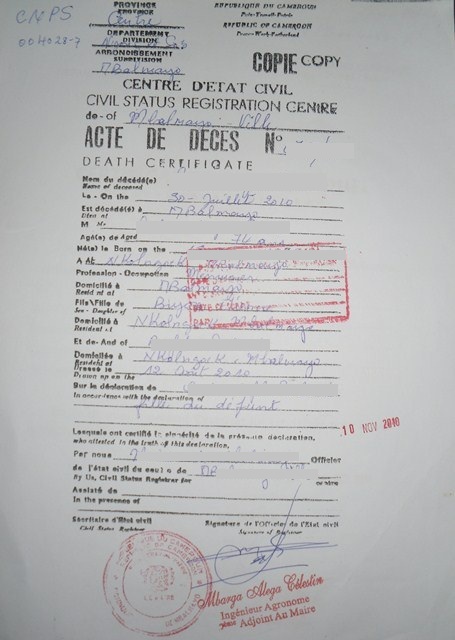 CNPS
004028-7
PROVINCE
PROVINCE
Centre
DEPARTEMENT
DIVISION
ARRONDISSEMENT
SUBDIVISION
MBalmayo
REPUBLIQUE DU CAMEROUN
Paix-Travail-Patrie
REPUBLIC OF CAMEROON
Peace-Work-Fatherland
COPIE COPY
CENTRE D'ETAT CIVIL
CIVIL STATUS REGISTRATION CENTRE
de-of Mbalmayo-Ville
ACTE DE DECES N°
DEATH CERTIFICATE
Nom du décédé(e)
Name of deceased
Le - On the 30 - Juillet 2010
Est décédé(e) à MBalmayo
Died at
Agé(e) de Aged 74 ans
Né(e) le Born on the
A At
Profession - Occupation
Domicilié à MBalmayo
Resident at
Fils/Fille de
Son - Daughter of
Domicilié à
Resident at
Et de-And of
Domiciliée à
Resident at
Dressé le 12 Août 2010
Drawn up on the
Sur la déclaration de
In accordance with the declaration of
fille du défunt
Lesquels ont certifié la sincérité de la présente déclaration.
who attested to the truth of this declaration.
10 NOV 2010
Par nous Officier
de l'état civil du centre de
By Us, Civil Status Registrar for
Assisté de
In the presence of
Secrétaire d'Etat civil
Civil Status Registrar
Signature de l'Officier de l'Etat civil
Signature of Registrar
Mbarga Alega Célestin
Ingénieur Agronome
Adjoint Au Maire